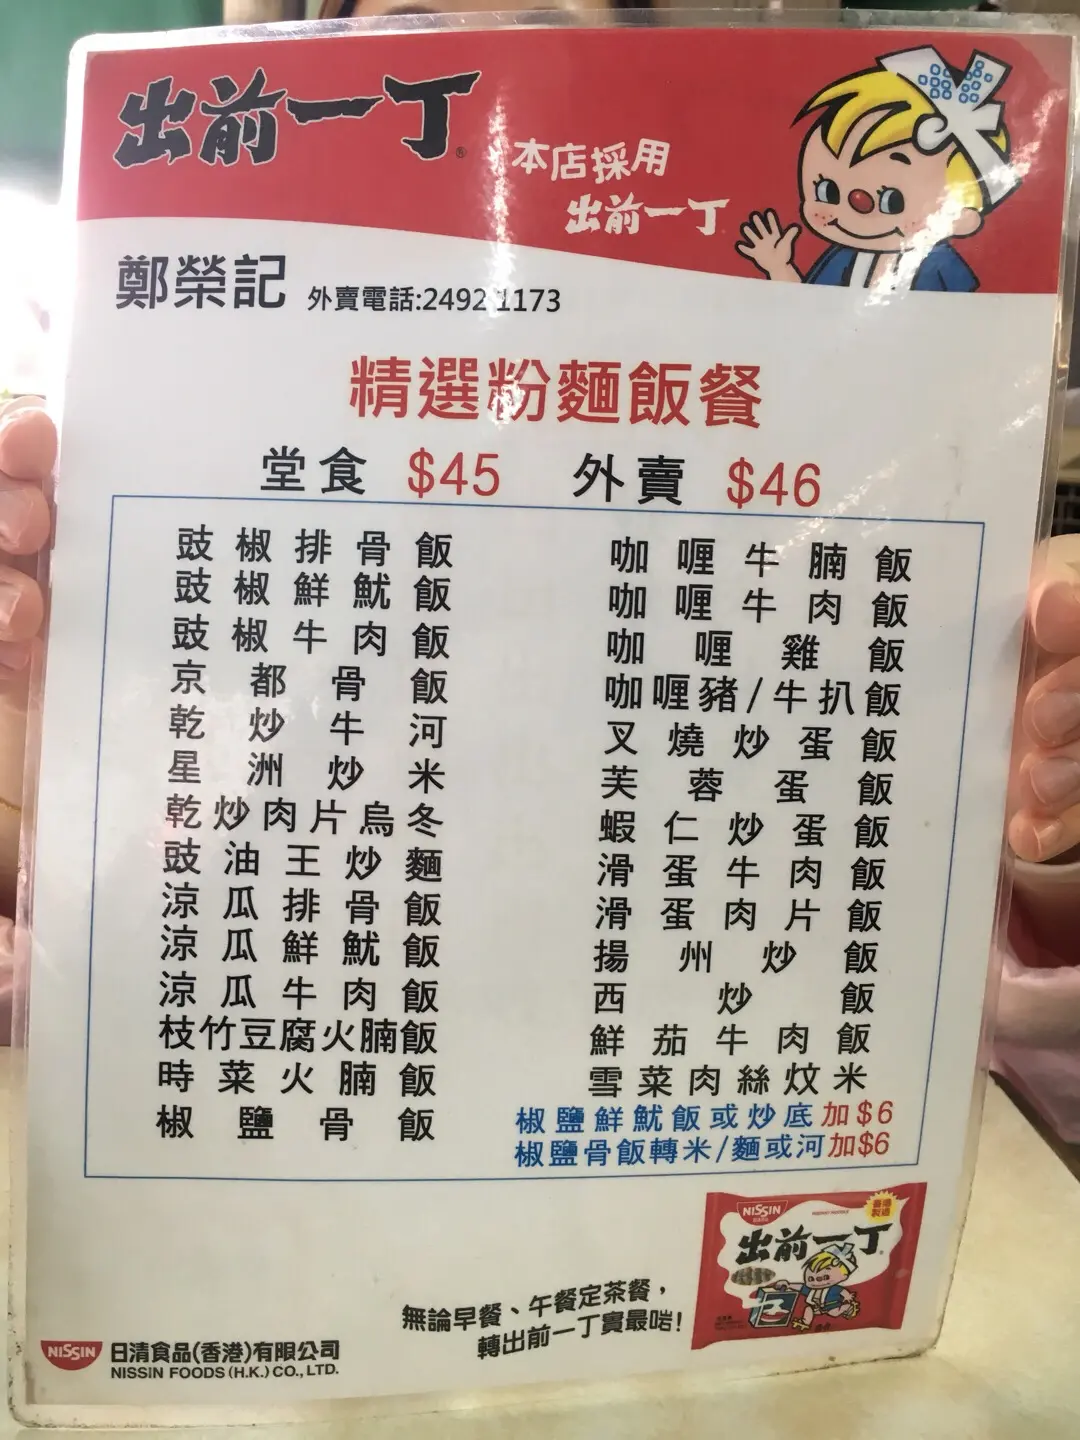 出前一丁®
本店採用
出前一丁
鄭榮記 外賣電話:2492 1173
精選粉麵飯餐
堂食 $45 外賣 $46
豉椒排骨飯
豉椒鮮魷飯
豉椒牛肉飯
京都骨飯
乾炒牛河
星洲炒米
乾炒肉片烏冬
豉油王炒麵
涼瓜排骨飯
涼瓜鮮魷飯
涼瓜牛肉飯
枝竹豆腐火腩飯
時菜火腩飯
椒鹽骨飯
咖喱牛腩飯
咖喱牛肉飯
咖喱雞飯
咖喱豬/牛扒飯
叉燒炒蛋飯
芙蓉蛋飯
蝦仁炒蛋飯
滑蛋牛肉飯
滑蛋肉片飯
揚州炒飯
西炒飯
鮮茄牛肉飯
雪菜肉絲炆米
椒鹽鮮魷飯或炒底加$6
椒鹽骨飯轉米/麵或河加$6
無論早餐、午餐定茶餐，
轉出前一丁實最啱!
NISSIN
出前一丁
香港
製造
NISSIN 日清食品(香港)有限公司
NISSIN FOODS (H.K.) CO., LTD.